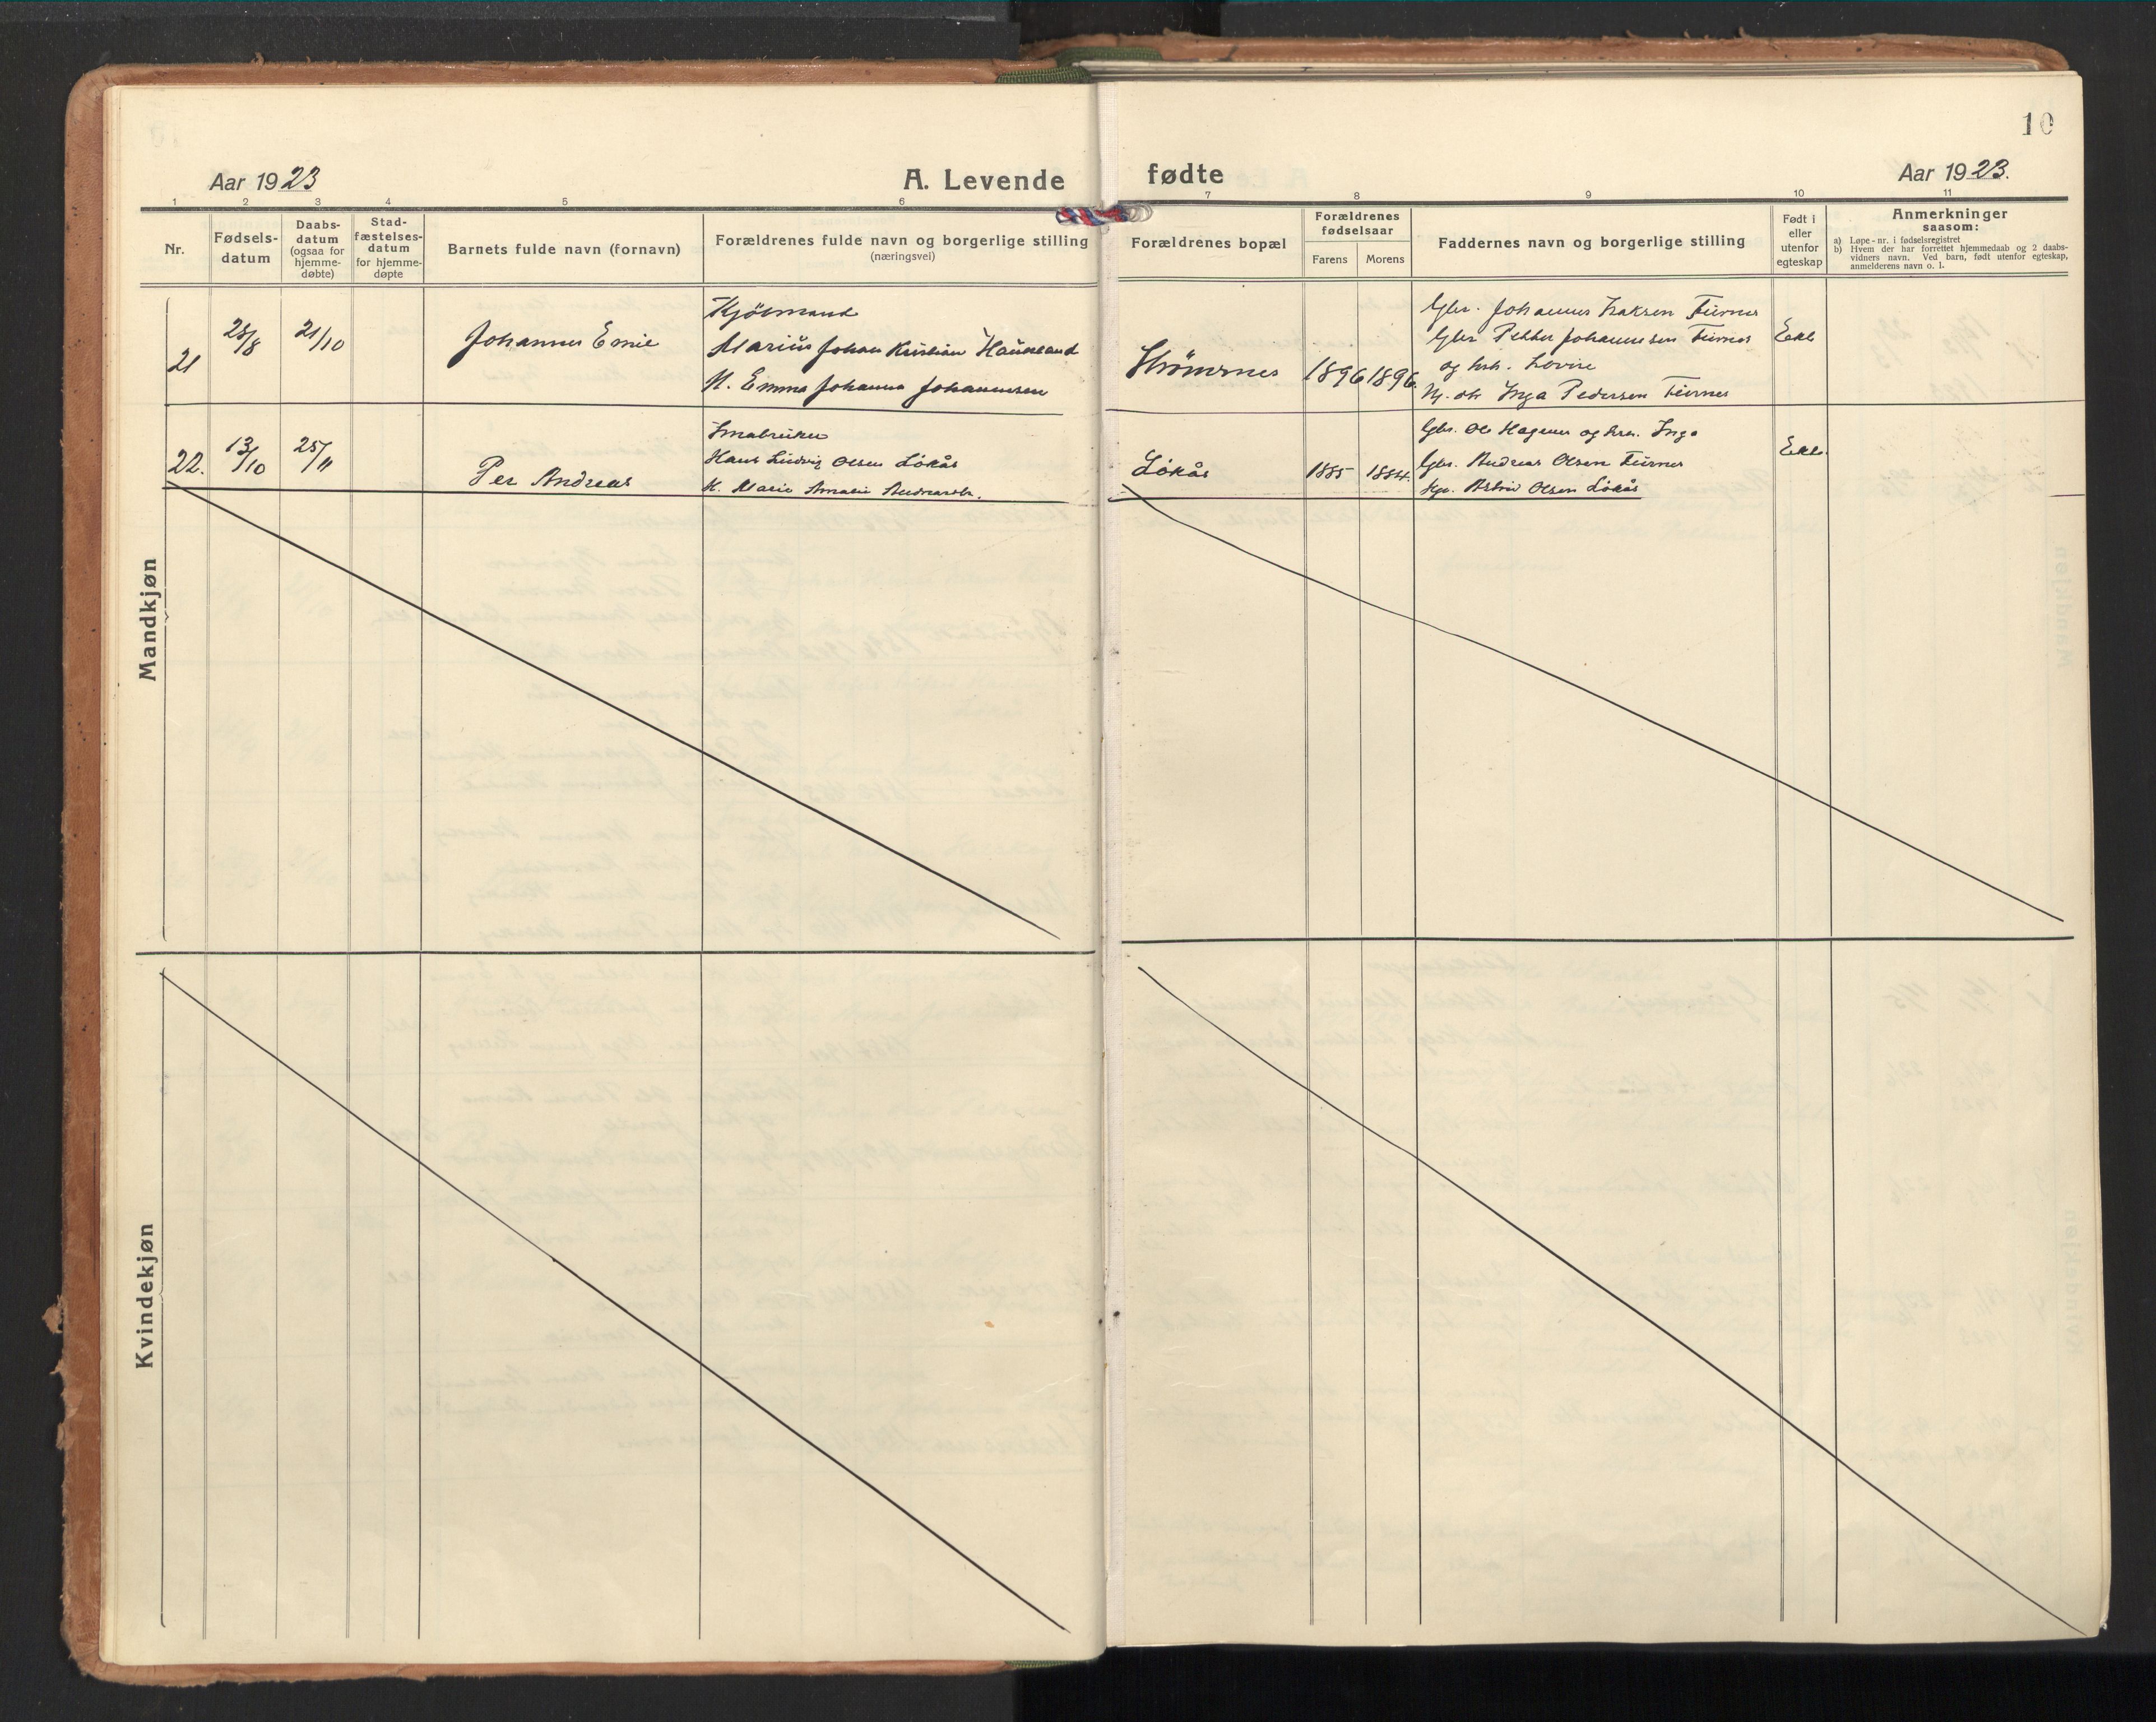 10
Aar 1923
A. Levende
fødte
Aar 1923.
1 2 3 4 5 6 7 8 9 10 11
Nr.
Fødsels-
datum
Daabs-
datum
(ogsaa for
hjemme-
døbte)
Stad-
fæstelses-
datum
for hjemme-
døpte
Barnets fulde navn (fornavn)
Forældrenes fulde navn og borgerlige stilling
(næringsvei)
Forældrenes bopæl
Forældrenes
fødselsaar
Farens
Morens
Faddernes navn og borgerlige stilling
Født i
eller
utenfor
egteskap
Anmerkninger
saasom:
a) Løpe-nr. i fødselsregistret
b) Hvem der har forrettet hjemmedaab og 2 daabs-
vidners navn. Ved barn, født utenfor egteskap,
anmelderens navn o. l.
Mandkjøn
21
25/8
21/10
Johannes Emil
Kjøbmand
Marius Johan Kristian
H. Emma Johanna Johannesen
Strömsnes
1896
1896.
Gbr. Johannes Isaksen
Gbr. Petter Johannesen
og hstr. Lovise
Inga Pedersen
Ekte
22.
13/10
25/11
Per Andreas
Småbruker
Hans Ludvig Olsen Lökås
H. Marie Amalie
Lökås
1885
1884.
Gbr. Ole Hagener og hstr. Inga
Gbr. Andreas Olsen
Astrid Olsen Lökås
Ekte
Kvindekjøn